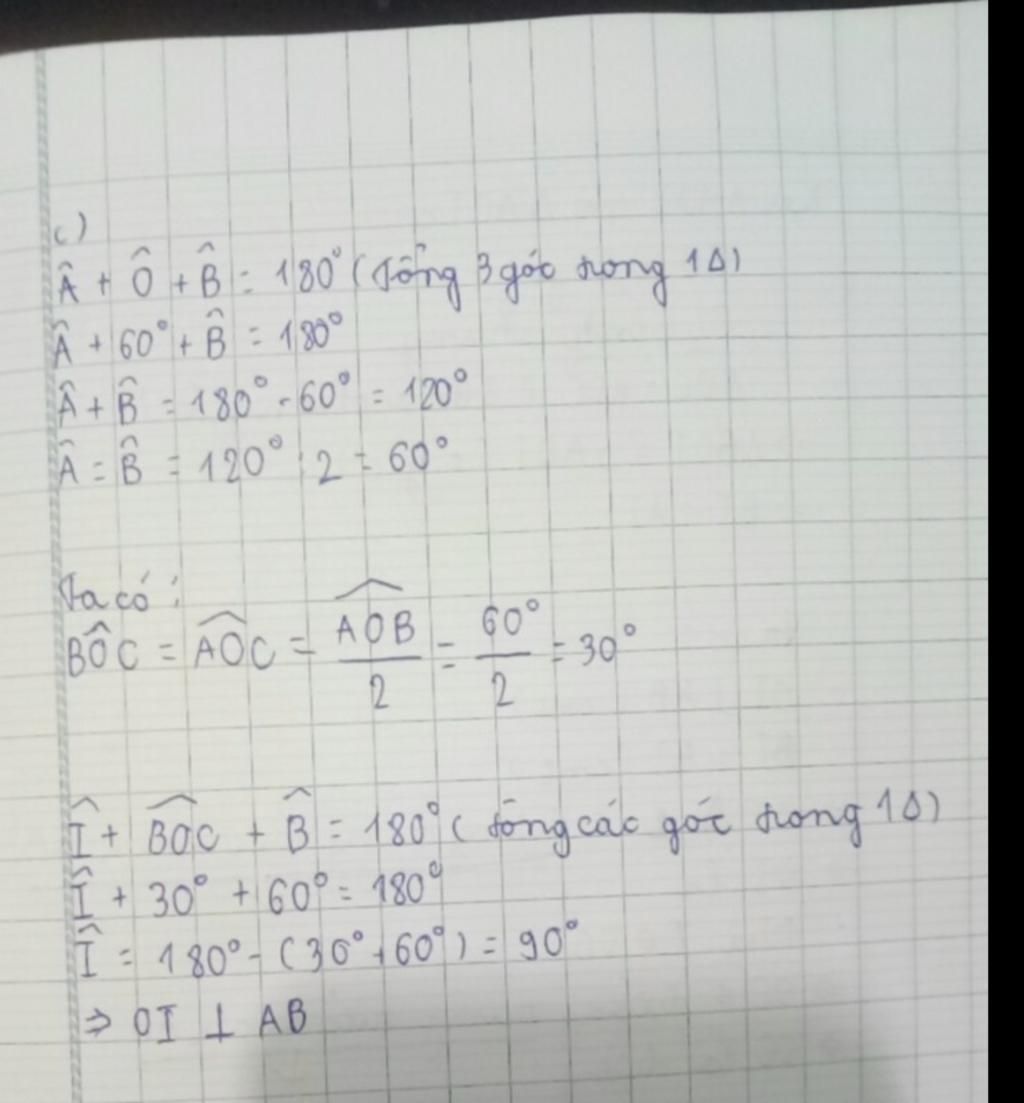 c)
Â + Ô + B̂ = 180° (Tổng 3 góc trong 1Δ)
Â + 60° + B̂ = 180°
Â + B̂ = 180° - 60° = 120°
Â = B̂ = 120° : 2 = 60°
Ta có :
BÔC = AÔC = AÔB / 2 = 60° / 2 = 30°
Î + BÔC + B̂ = 180° ( tổng các góc trong 1Δ)
Î + 30° + 60° = 180°
Î = 180° - (30° + 60°) = 90°
⇒ OI ⊥ AB